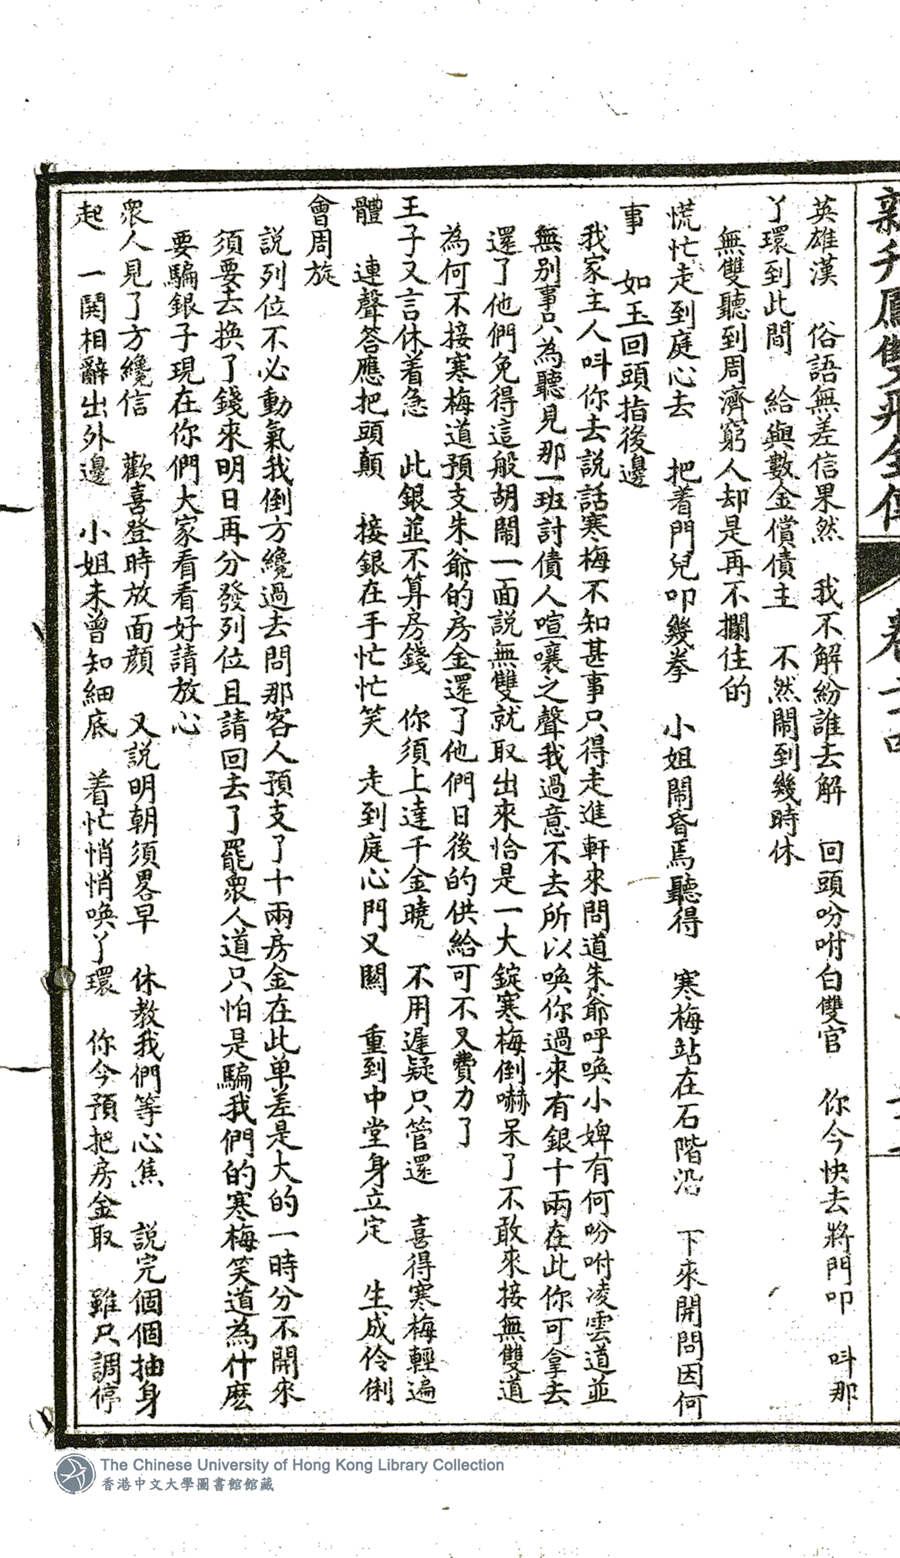 新升鳳雙飛全傳　卷之四
英雄漢　俗語無差信果然　我不解紛誰去解　回頭吩咐白雙官　你今快去將門叩　呌那
丫環到此間　給與數金償債主　不然鬧到幾時休
無雙聽到周濟窮人却是再不攔住的
慌忙走到庭心去　把着門兒叩幾拳　小姐鬧昏焉聽得　寒梅站在石階沿　下來開問因何
事　如玉回頭指後邊
我家主人呌你去説話寒梅不知甚事只得走進軒來問道朱爺呼喚小婢有何吩咐凌雲道並
無别事只為聽見那一班討債人喧嚷之聲我過意不去所以喚你過來有銀十兩在此你可拿去
還了他們免得這般胡鬧一面説無雙就取出來恰是一大錠寒梅倒嚇呆了不敢來接無雙道
為何不接寒梅道預支朱爺的房金還了他們日後的供給可不又費力了
王子又言休着急　此銀並不算房錢　你須上達千金曉　不用遲疑只管還　喜得寒梅輕遍
體　連聲答應把頭顛　接銀在手忙忙笑　走到庭心門又關　重到中堂身立定　生成伶俐
會周旋
説列位不必動氣我倒方纔過去問那客人預支了十兩房金在此单差是大的一時分不開來
須要去換了錢來明日再分發列位且請回去了罷衆人道只怕是騙我們的寒梅笑道為什麽
要騙銀子現在你們大家看看好請放心
衆人見了方纔信　歡喜登時放面顔　又説明朝須畧早　休教我們等心焦　説完個個抽身
起　一閧相辭出外邊　小姐未曾知細底　着忙悄悄喚丫環　你今預把房金取　雖只調停
The Chinese University of Hong Kong Library Collection
香港中文大學圖書館館藏